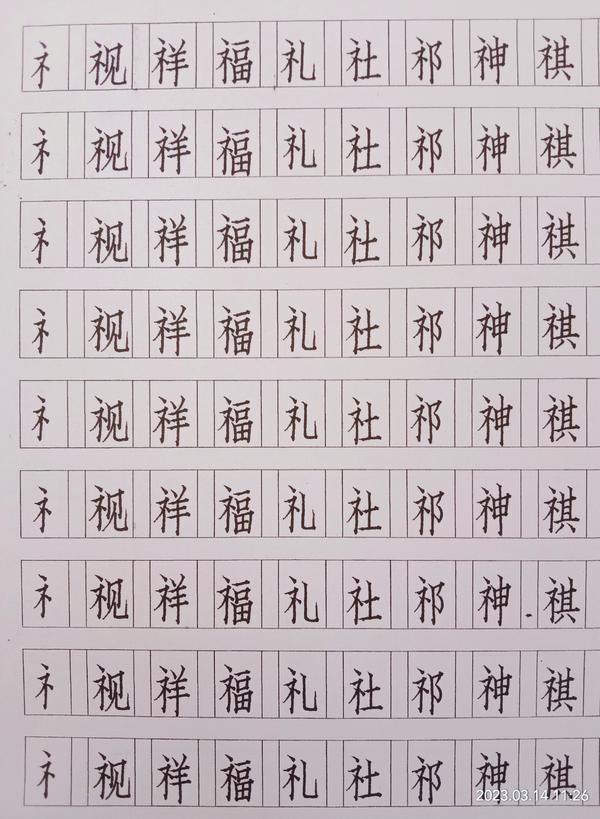 礻视祥福礼社祁神祺
礻视祥福礼社祁神祺
礻视祥福礼社祁神祺
礻视祥福礼社祁神祺
礻视祥福礼社祁神祺
礻视祥福礼社祁神祺
礻视祥福礼社祁神祺
礻视祥福礼社祁神祺
礻视祥福礼社祁神祺
2023.03.14 11:26